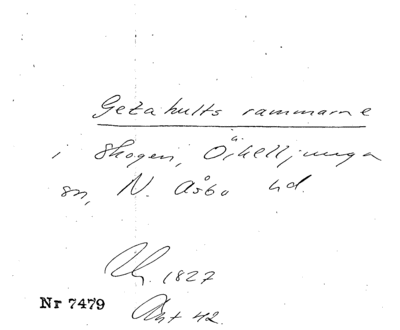 Getahults rammarne
i Skogen, Örkelljunga
sn, N. Åsbo hd.
1827
Nr 7479
Akt 42.